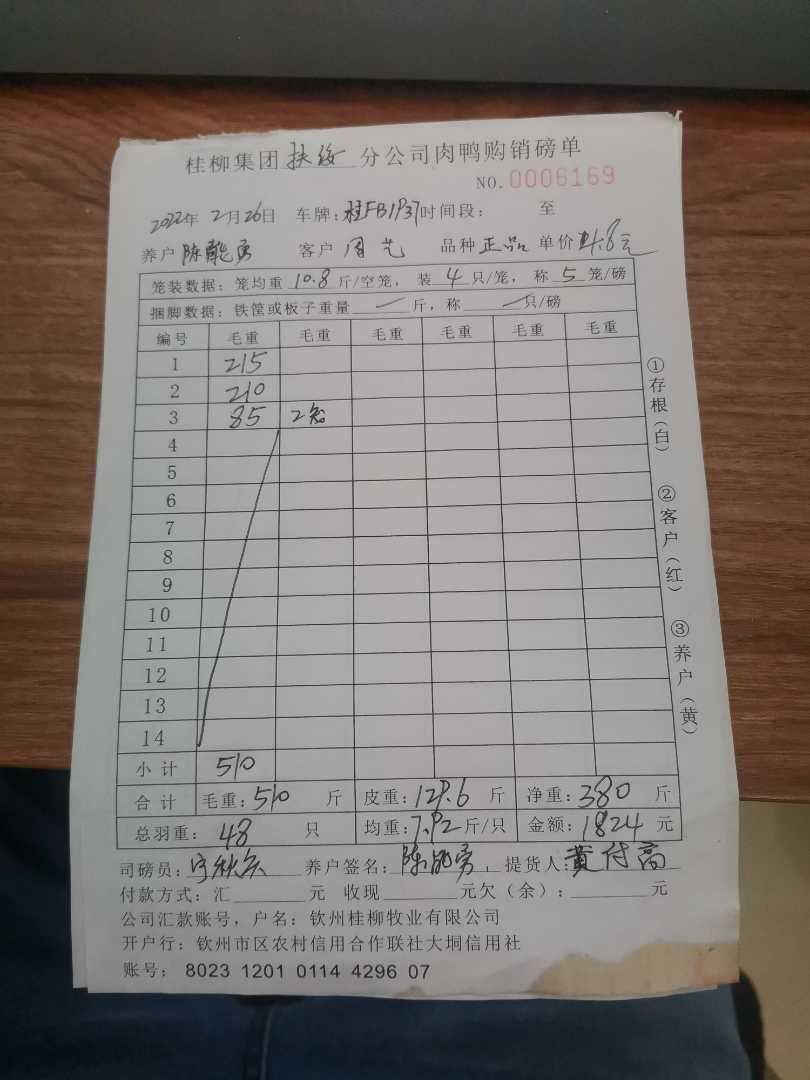 桂柳集团扶绥分公司肉鸭购销磅单
NO.0006169
2022年2月26日 车牌:桂FB1P37时间段: 至
养户 陈能勇 客户 周艺 品种 正品 单价 4.8元
笼装数据:笼均重 10.8 斤/空笼,装 4 只/笼,称 5 笼/磅
捆脚数据:铁筐或板子重量 — 斤,称 — 只/磅
编号 毛重 毛重 毛重 毛重 毛重 毛重
1 215
2 210
3 85 2笼
4
5
6
7
8
9
10
11
12
13
14
小计 510
合计 毛重:510 斤 皮重:129.6 斤 净重:380 斤
总羽重: 48 只 均重:7.92斤/只 金额:1824 元
司磅员: 养户签名:陈能勇 提货人:黄付高
付款方式:汇 元 收现 元欠(余): 元
公司汇款账号,户名:钦州桂柳牧业有限公司
开户行:钦州市区农村信用合作联社大垌信用社
账号:8023 1201 0114 4296 07
①存根(白)
②客户(红)
③养户(黄)